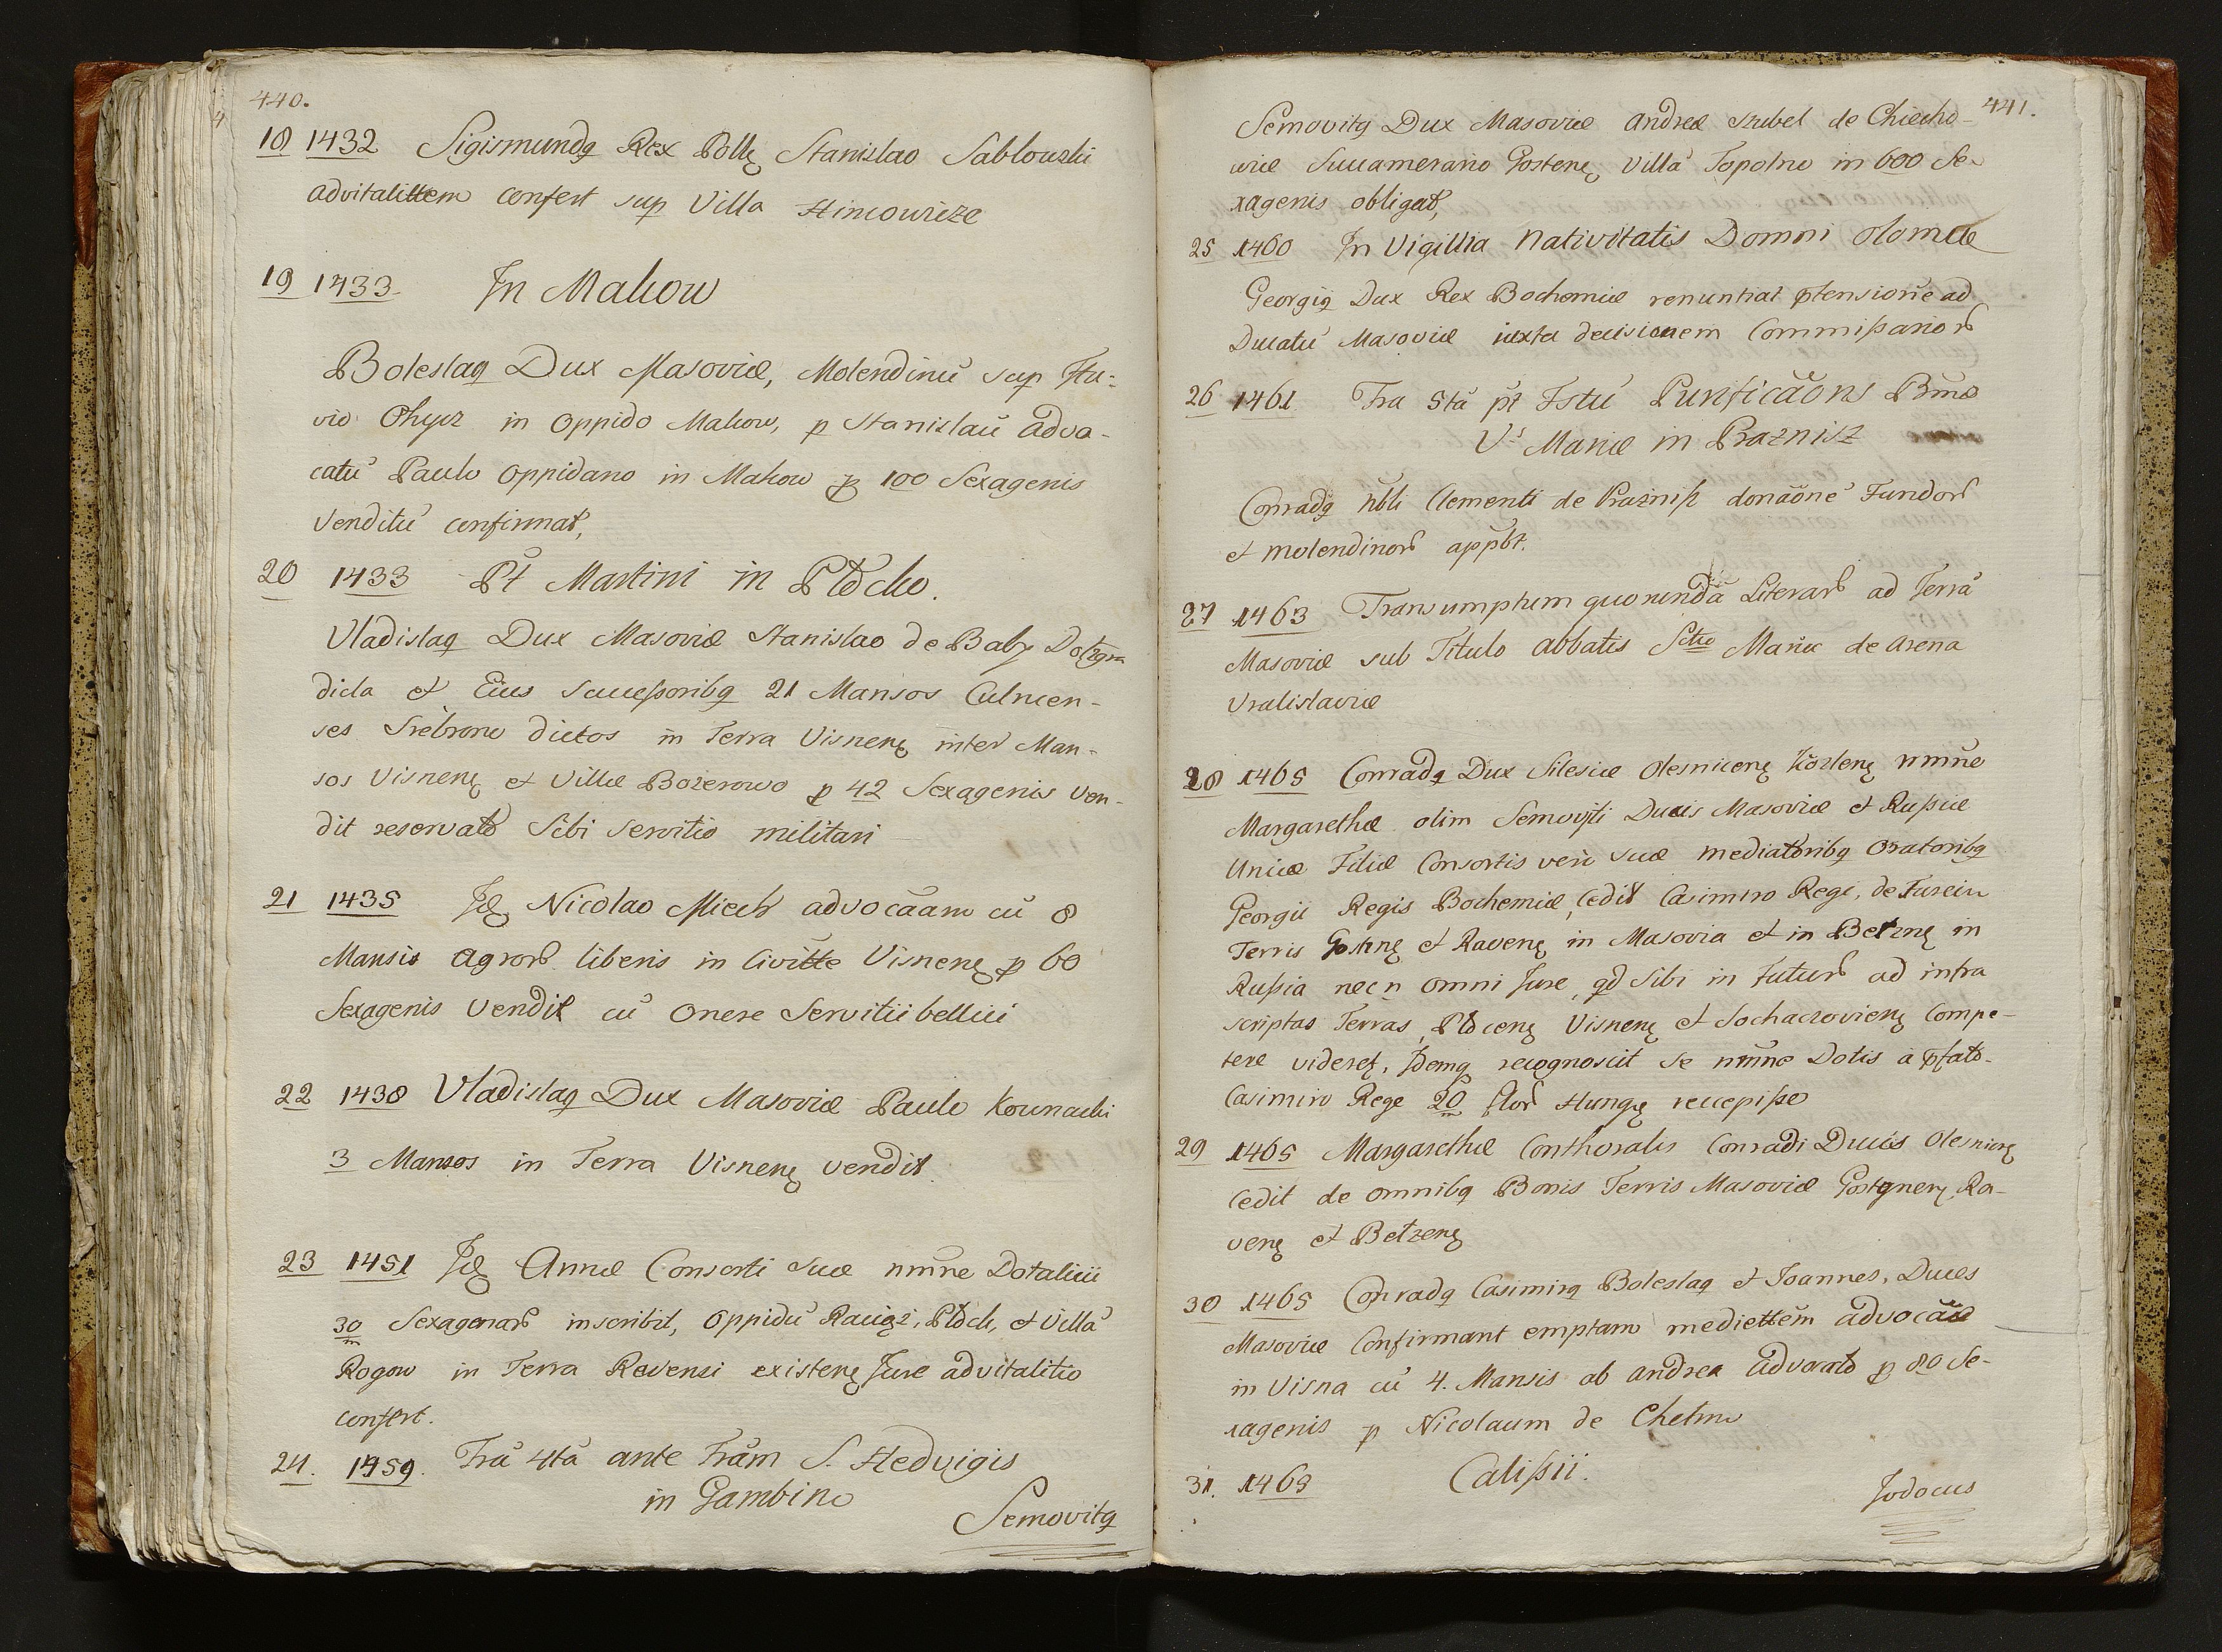 440.
18 1432 Sigismundq Rex Pollę Stanislao Sablowski
advitalittem confert sup Villa Himowicze
19 1433 In Makow
Boleslaq Dux Masoviæ, Molendinū sup Flu-
vio Ohyz in Oppido Makow, p Stanislaū Advo-
catū Paulo Oppidano in Makow p 100 Sexagenis
venditū confirmat,
20 1433 Pt Martini in Plocko.
Vladislaq Dux Masoviæ Stanislao de Baby
dicla et Eius Successoribq 21 Mansos Culmen-
ses Srebrono dictos in Terra Visnenę inter Man-
sos Visnenę et Villæ Bozerowo p 42 Sexagenis Ven-
dit reservato Sibi Servitio militari
21 1435 Idę Nicolao Miech advocãam cū 8
Mansis agrorˀ liberis in Civitte Visnenę p 60
Sexagenis Vendit cū Onere Servitii bellici
22 1438 Vladislaq Dux Masoviæ Paulo Kownacki
3 Mansos in Terra Visnenę vendit.
23 1451 Idę Annæ Consorti Suæ nmne Dotalicii
30 m Sexagenarˀ inscribit, Oppidū Raciąż, Plock, et Villā
Rogow in Terra Ravensi existenę Jure advitalitio
confert.
24. 1459. Frā 4tā ante Frām S. Hedvigis
in Gambino
Semovitq
441.
Semovitq Dux Masoviæ Andreæ Szubel de Chiecho-
wiæ Succamerario Gostenę Villā Topolno in 600 Se-
xagenis obligat,
25 1460 In Vigillia Nativitatis Domni
Georgiq Dux Rex Bochemiæ renuntiat ptensione ad
Ducatū Masoviæ iuxta decisionem Commissariorˀ
26 1461 Fra 5tā pt Fstū Purificãons Bmæ
Vs Mariæ in Praznisz
Conradq nbli Clementi de Praznisz donãone Fundorˀ
et Molendinorˀ appbt.
27 1463 Transumptum quorundā Literarˀ ad Terrā
Masoviæ sub Titulo Abbatis Sctæ Mariæ de Arena
Vratislaviæ
28 1465 Conradq Dux Silesiæ Olesnicenę Kozlenę nmne
Margarethæ olim Semoviti Ducis Masoviæ et Russiæ
Unicæ Filiæ Consortis vero suæ mediatoribq Oratoribq
Georgii Regis Bochemiæ, Cedit Casimiro Regi, de Jure in
Terris Gostnę et Ravenę in Masovia et in Betznę in
Russia nec n omni Jure, qd Sibi in Futurˀ ad infra
scriptas Terras, Plocenę Visnenę et Sochaczovienę Compe-
tere videretˀ, Idemq recognoscit se nmne Dotis a pfato
Casimiro Rege 20 m florˀ Hungę reccepisse
29 1465 Margarethæ Conthoralis Conradi Ducis Olesnicę
Cedit de omnibq Bonis Terris Masoviæ Gostynenę Ra-
venę et Betzenę
30 1465 Conradq Casimirq Boleslaq et Joannes, Duces
Masoviæ Confirmant emptam mediettem advocãæ
in Visna cū 4. Mansis ab Andrea Advocato p 80 Se-
xagenis p Nicolaum de Chelm
31. 1465 Calissii.
Jodocus